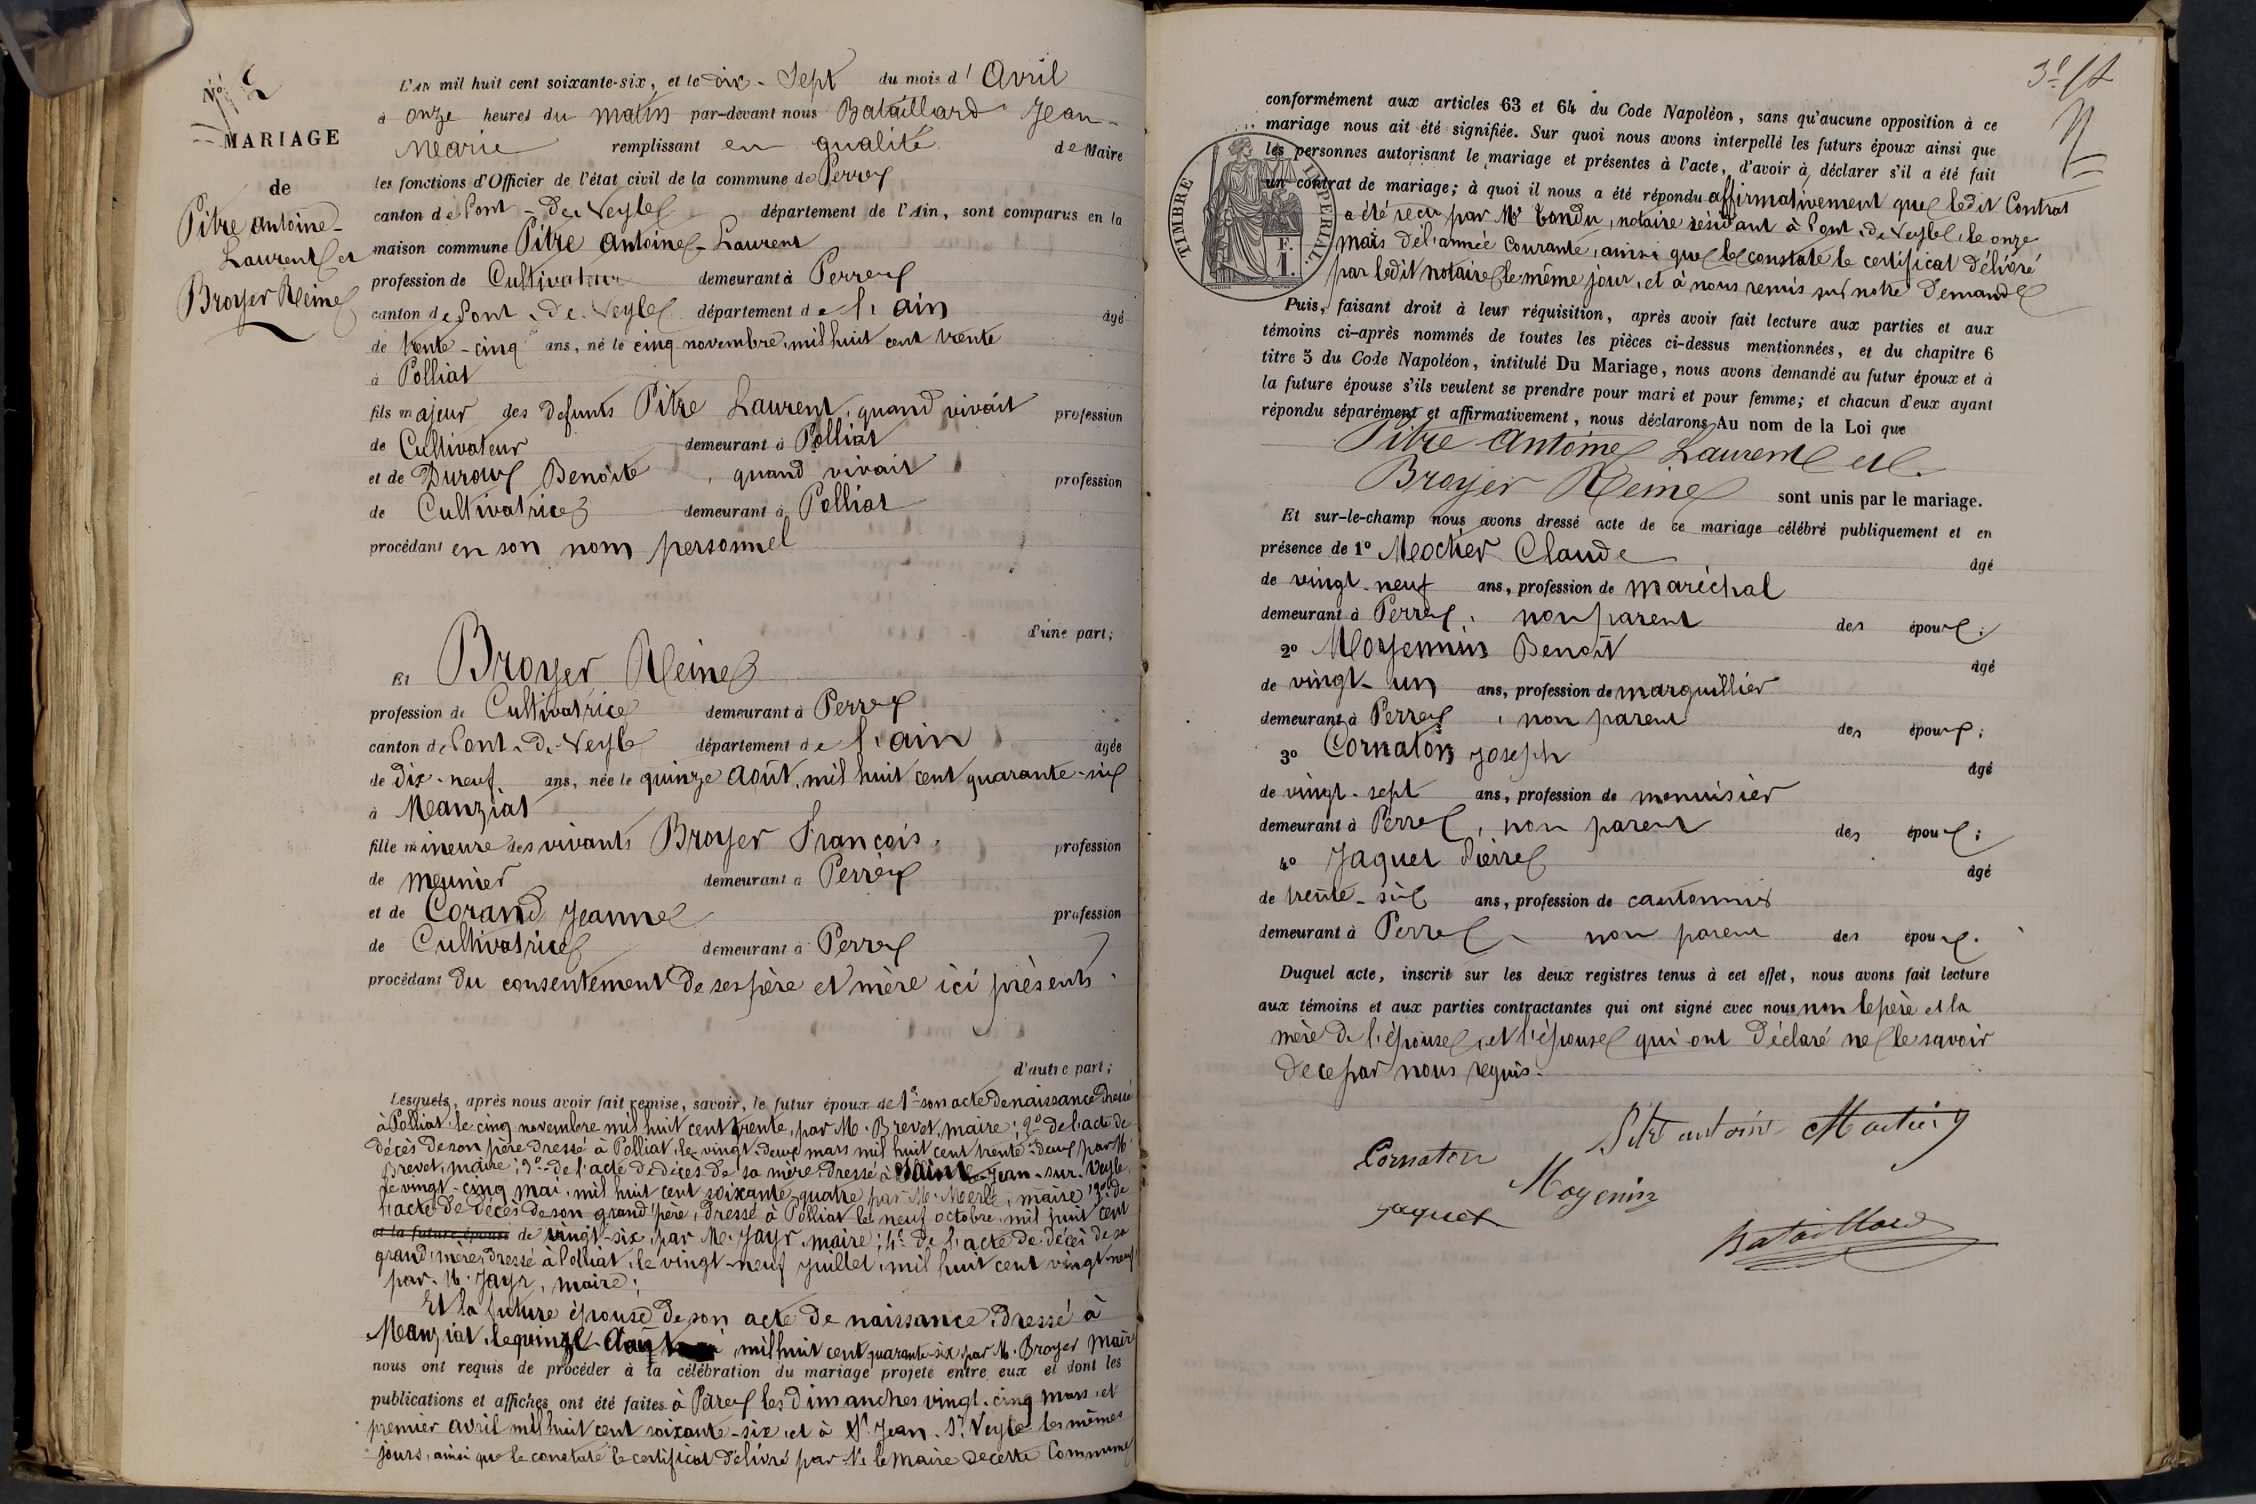 No. 2
MARIAGE
de
Pitre Antoine-
Laurent et
Broyer Reine
L'AN mil huit cent soixante-six, et le dix-Sept du mois d'Avril
à onze heures du matin par-devant nous Bataillard Jean-
Marie remplissant en qualité de Maire
les fonctions d'Officier de l'état civil de la commune de Perrex
canton de Pont-de-Veyle département de l'Ain, sont comparus en la
maison commune Pitre Antoine-Laurent
profession de Cultivateur demeurant à Perrex
canton de Pont-de-Veyle département de l'ain âgé
de trente-cinq ans, né le cinq novembre, mil huit cent trente
à Polliat
fils majeur des defunts Pitre Laurent, quand vivait profession
de Cultivateur demeurant à Polliat
et de Duroux Benoîte, quand vivait profession
de Cultivatrice demeurant à Polliat
procédant en son nom personnel
d'une part;
Et Broyer Reine
profession de Cultivatrice demeurant à Perrex
canton de Pont-de-Veyle département de l'ain âgée
de dix-neuf ans, née le quinze Août, mil huit cent quarante-six
à Manziat
fille mineure des vivants Broyer François, profession
de meunier demeurant à Perrex
et de Corand Jeanne profession
de Cultivatrice demeurant à Perrex
procédant du consentement de ses père et mère ici présents.
d'autre part;
Lesquels, après nous avoir fait remise, savoir, le futur époux de 1° son acte de naissance dressé
à Polliat, le cinq novembre mil huit cent trente, par M. Brevet, maire; 2° de l'acte de
décès de son père dressé à Polliat, le vingt-deux mars mil huit cent trente-deux par M.
Brevet, maire; 3° de l'acte de décès de sa mère dressé à Saint-Jean-sur-Veyle,
le vingt-cinq mai, mil huit cent soixante-quatre par M. Merle, maire; de
l'acte de décès de son grand'père, dressé à Polliat le neuf octobre, mil huit cent
et la future épouse de vingt-six, par M. Jayr, maire; 4° de l'acte de décès de sa
grand'mère, dressé à Polliat, le vingt-neuf juillet, mil huit cent vingt-neuf
par M. Jayr, maire;
Et la future épouse de son acte de naissance, dressé à
Manziat, le quinze Août, mil huit cent quarante-six, par M. Broyer maire
nous ont requis de procéder à la célébration du mariage projeté entre eux et dont les
publications et affiches ont été faites à Perrex les dimanches vingt-cinq mars, et
premier avril mil huit cent soixante-six, et à St Jean-Sr Veyle les mêmes
jours, ainsi que le constate le certificat délivré par M. le Maire de cette Commune
conformément aux articles 63 et 64 du Code Napoléon, sans qu'aucune opposition à ce
mariage nous ait été signifiée. Sur quoi nous avons interpellé les futurs époux ainsi que
les personnes autorisant le mariage et présentes à l'acte, d'avoir à déclarer s'il a été fait
un contrat de mariage; à quoi il nous a été répondu affirmativement que ledit Contrat
a été reçu par Me Tondu, notaire résidant à Pont-de-Veyle, le onze
mars de l'année Courante, ainsi que le constate le certificat délivré
par ledit notaire le même jour, et à nous remis sur notre demande
TIMBRE IMPERIAL
F.
1.
Puis, faisant droit à leur réquisition, après avoir fait lecture aux parties et aux
témoins ci-après nommés de toutes les pièces ci-dessus mentionnées, et du chapitre 6
titre 5 du Code Napoléon, intitulé Du Mariage, nous avons demandé au futur époux et à
la future épouse s'ils veulent se prendre pour mari et pour femme; et chacun d'eux ayant
répondu séparément et affirmativement, nous déclarons Au nom de la Loi que
Pitre Antoine Laurent et
Broyer Reine sont unis par le mariage.
Et sur-le-champ nous avons dressé acte de ce mariage célébré publiquement et en
présence de 1° Claude âgé
de vingt-neuf ans, profession de maréchal
demeurant à Perrex, non parent des époux;
2° Moyennin Benoît âgé
de vingt-un ans, profession de marguillier
demeurant à Perrex, non parent des époux;
3° Cornaton Joseph âgé
de vingt-sept ans, profession de menuisier
demeurant à Perrex, non parent des époux;
4° Jaquet Pierre âgé
de trente-six ans, profession de cantonnier
demeurant à Perrex non parent des époux.
Duquel acte, inscrit sur les deux registres tenus à cet effet, nous avons fait lecture
aux témoins et aux parties contractantes qui ont signé avec nous non le père et la
mère de l'épouse, et l'épouse qui ont déclaré ne le savoir
de ce par nous requis.
Pitre antoine
Cornaton
Moyenin
jaquet
Bataillard